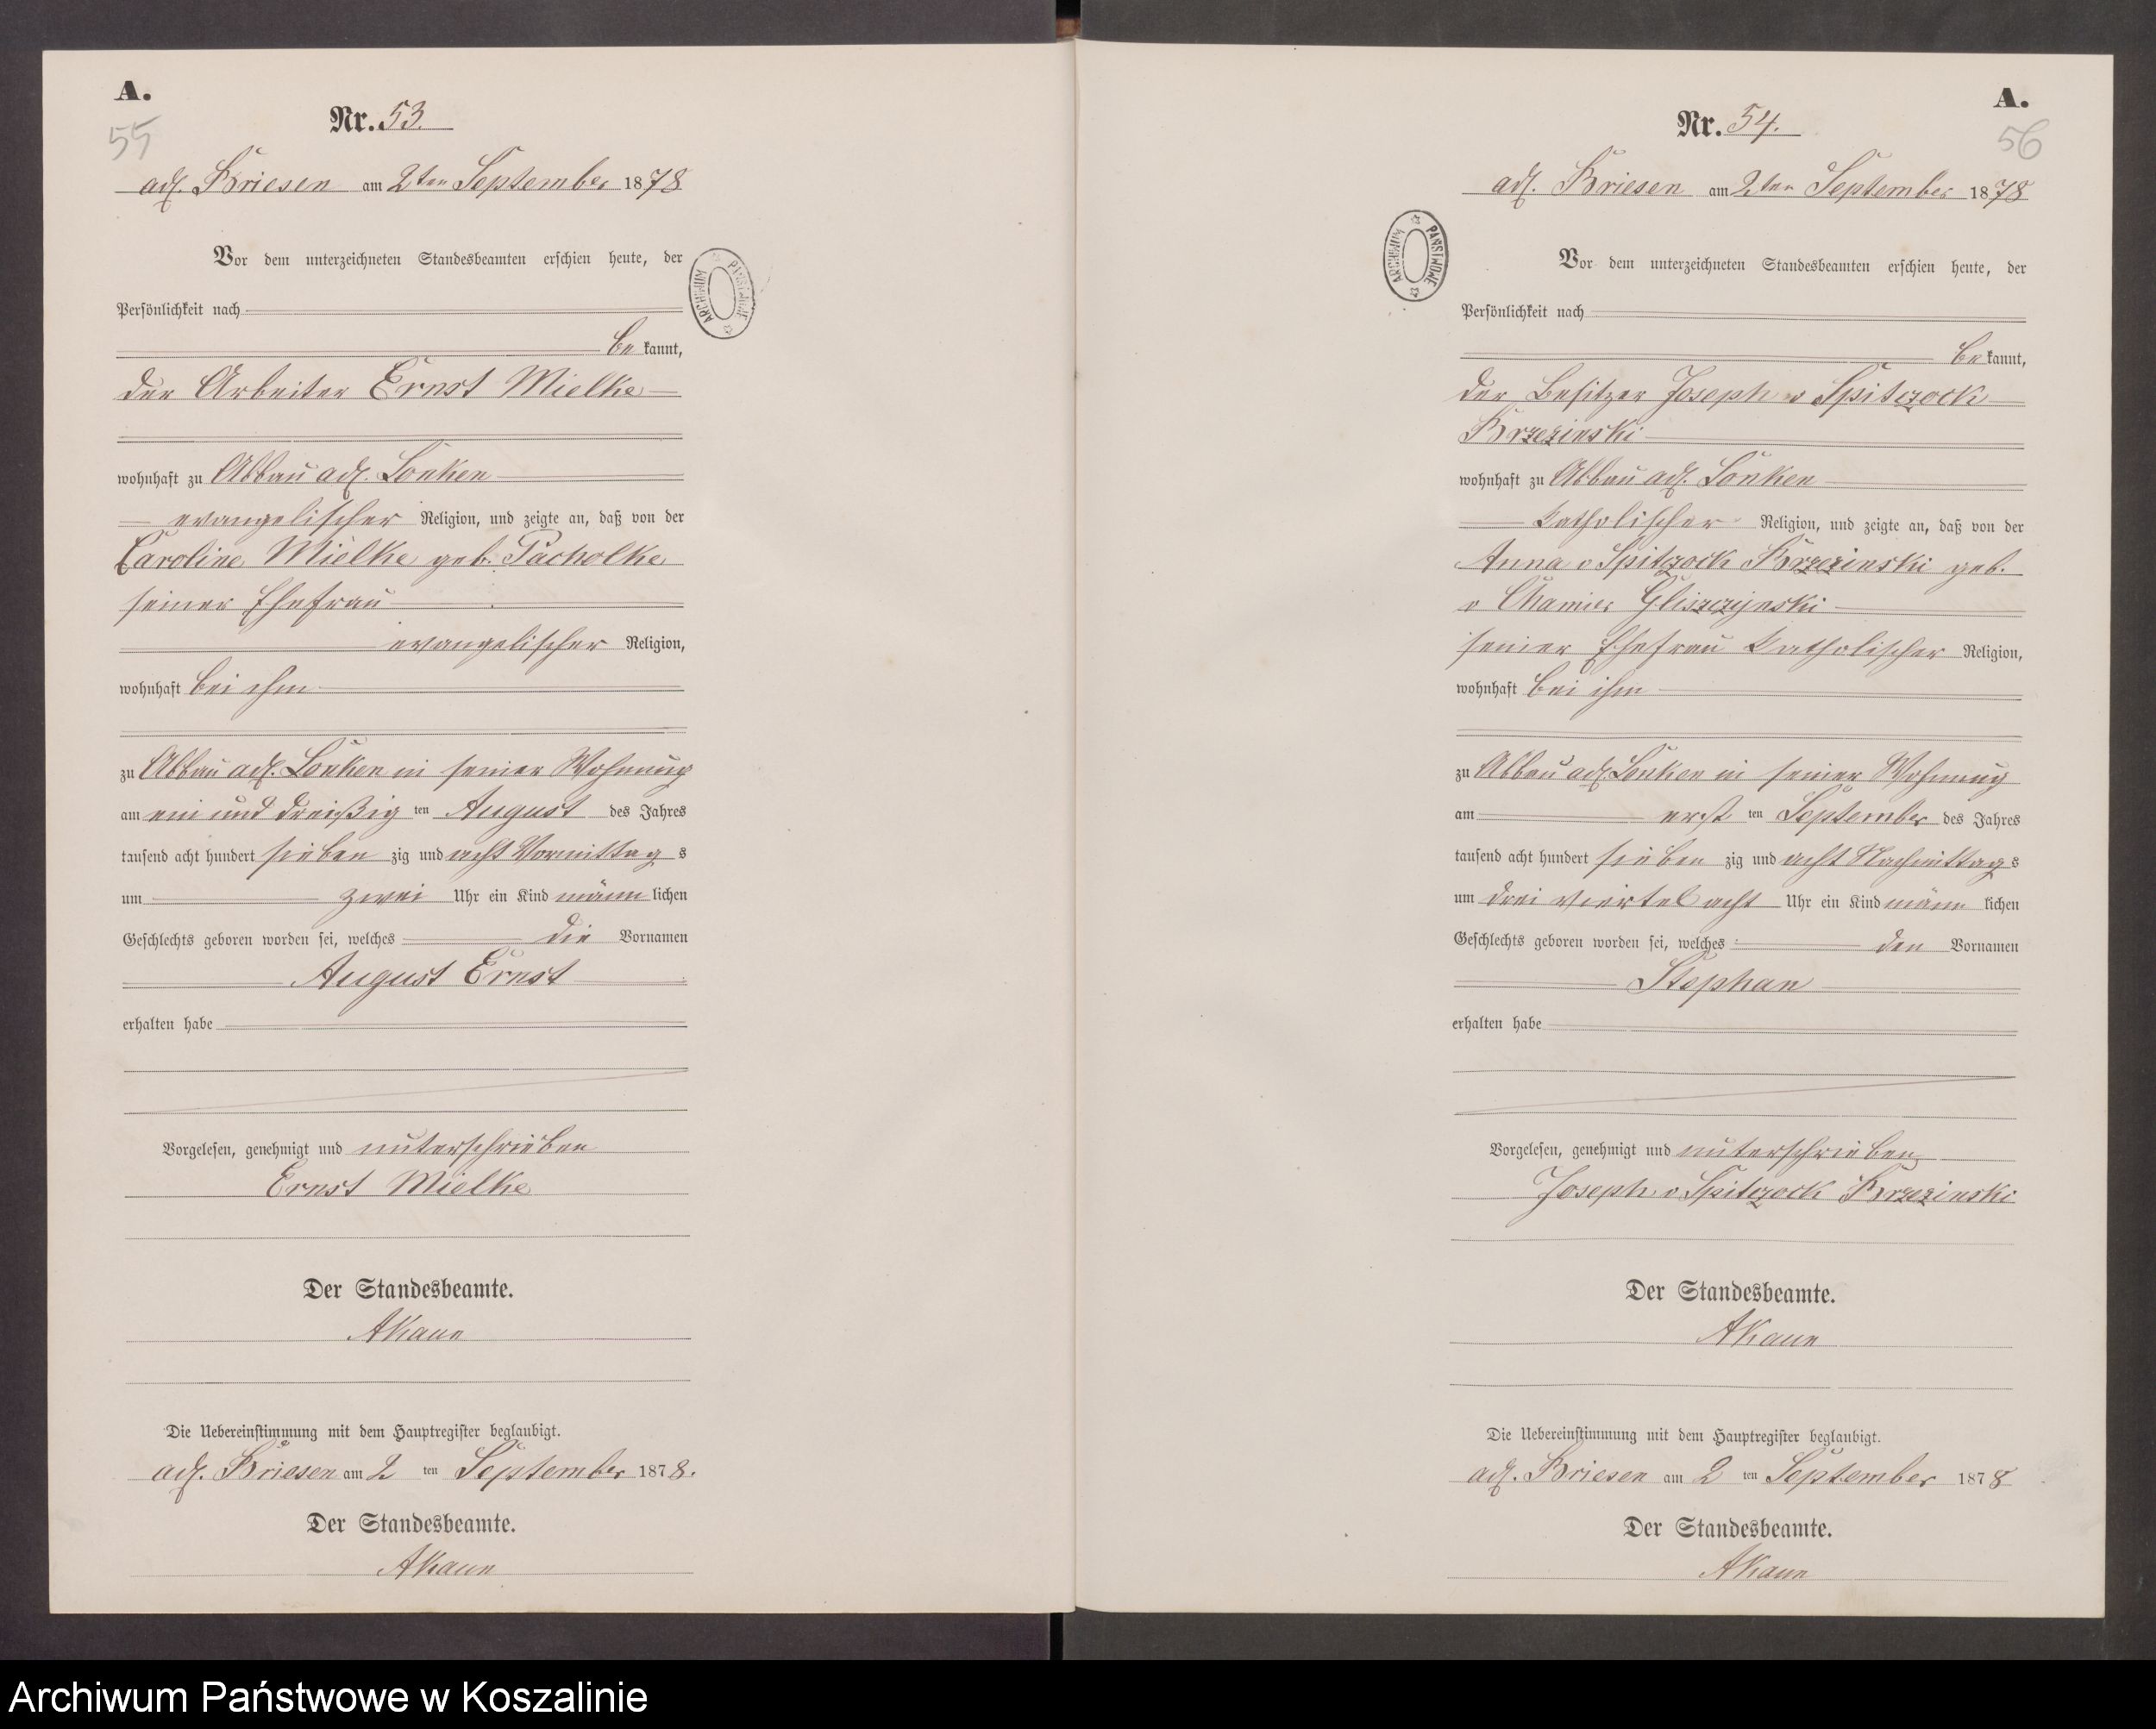 A.
55
Nr. 53.
adl. Briesen am 2ten September 1878
Vor dem unterzeichneten Standesbeamten erschien heute, der
Persönlichkeit nach
be kannt,
der Arbeiter Ernst Mielke
wohnhaft zu Abbau adl. Lonken
evangelischer Religion, und zeigte an, daß von der
Caroline Mielke geb. Pacholke
seiner Ehefrau
evangelischer Religion,
wohnhaft bei ihm
zu Abbau adl. Lonken in seiner Wohnung
am ein und dreißig ten August des Jahres
tausend acht hundert sieben zig und acht Vormittag s
um zwei Uhr ein Kind männ lichen
Geschlechts geboren worden sei, welches die Vornamen
August Ernst
erhalten habe
Vorgelesen, genehmigt und unterschrieben
Ernst Mielke
Der Standesbeamte.
AKaun
Die Uebereinstimmung mit dem Hauptregister beglaubigt.
adl. Briesen am 2 ten September 1878.
Der Standesbeamte.
AKaun
ARCHIWUM PAŃSTWOWE
A.
56
Nr. 54.
adl. Briesen am 2ten September 1878
Vor dem unterzeichneten Standesbeamten erschien heute, der
Persönlichkeit nach
be kannt,
der Besitzer Joseph v Spitczock
Brzezinski
wohnhaft zu Abbau adl. Lonken
katholischer Religion, und zeigte an, daß von der
Anna v Spitczock Brzezinski geb.
v Chamier Gliszczynski
seiner Ehefrau katholischer Religion,
wohnhaft bei ihm
zu Abbau adl. Lonken in seiner Wohnung
am erst ten September des Jahres
tausend acht hundert sieben zig und acht Nachmittag s
um drei viertel acht Uhr ein Kind männ lichen
Geschlechts geboren worden sei, welches den Vornamen
Stephan
erhalten habe
Vorgelesen, genehmigt und unterschrieben
Joseph v Spitczock Brzezinski
Der Standesbeamte.
AKaun
Die Uebereinstimmung mit dem Hauptregister beglaubigt.
adl. Briesen am 2 ten September 1878
Der Standesbeamte.
AKaun
ARCHIWUM PAŃSTWOWE
Archiwum Państwowe w Koszalinie